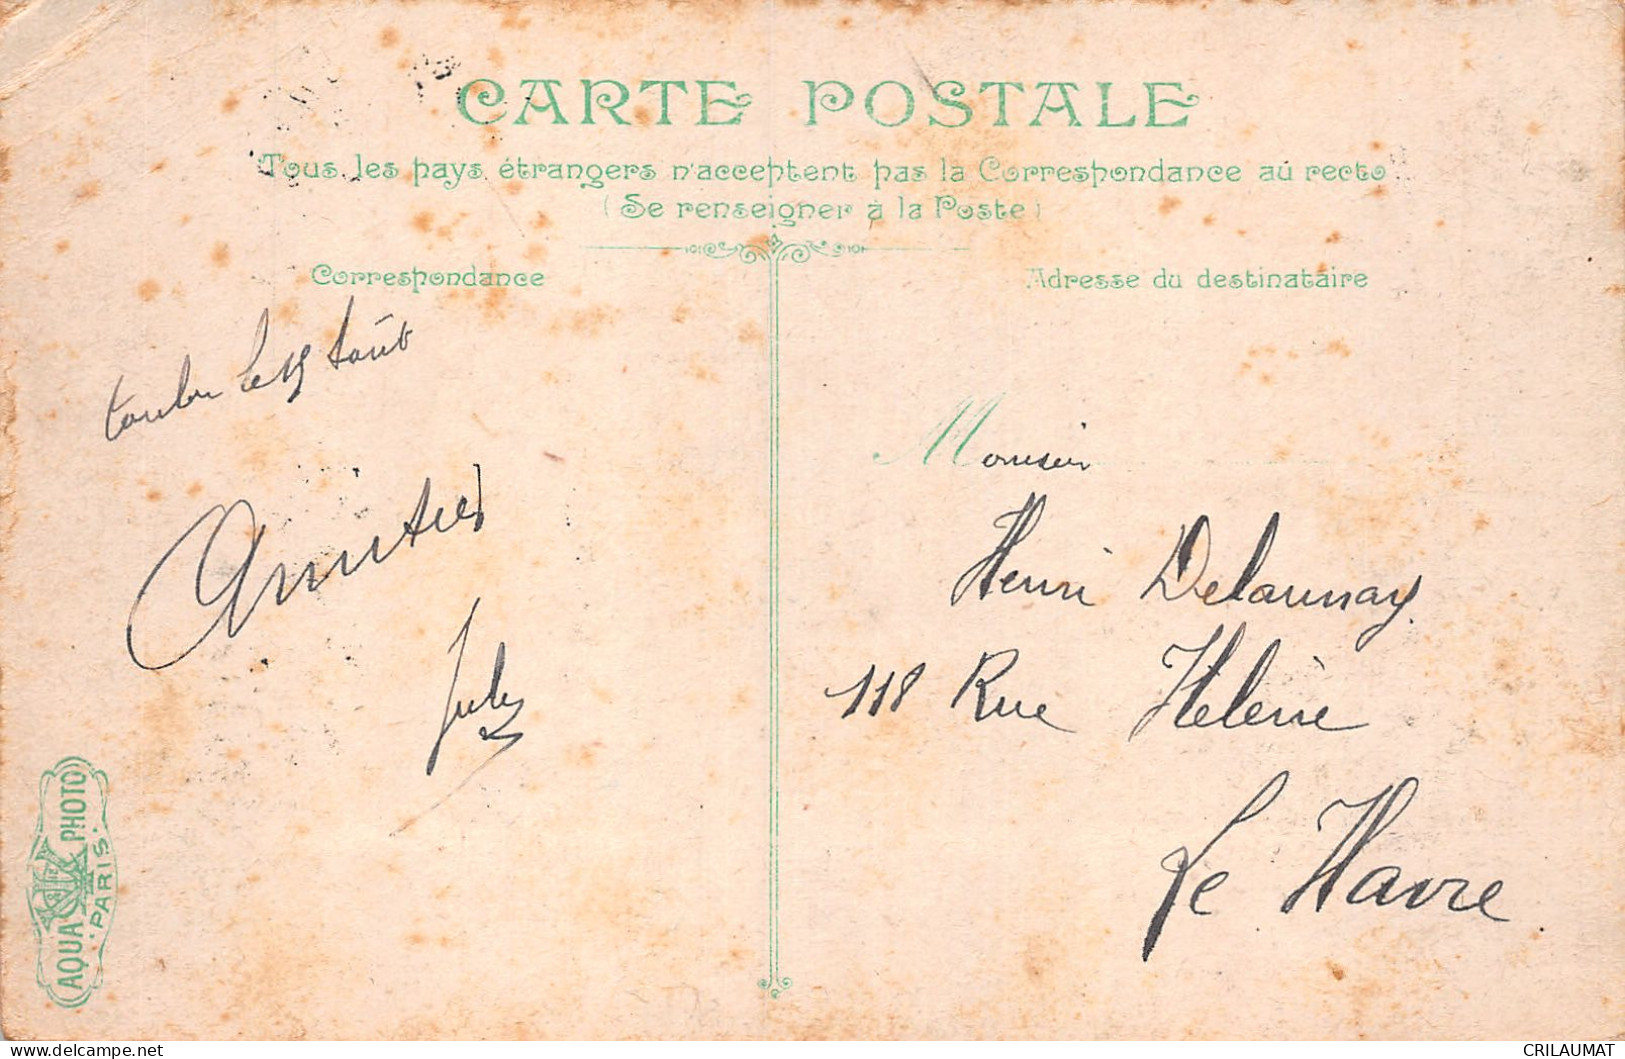 CARTE POSTALE
Tous les pays étrangers n'acceptent pas la Correspondance au recto
(Se renseigner à la Poste)
Correspondance
toulon le 15 août
Amitiés
Jules
Adresse du destinataire
Monsieur
Henri Delaunay
118 Rue Helène
Le Havre
AQUA PHOTO
PARIS
CRILAUMAT